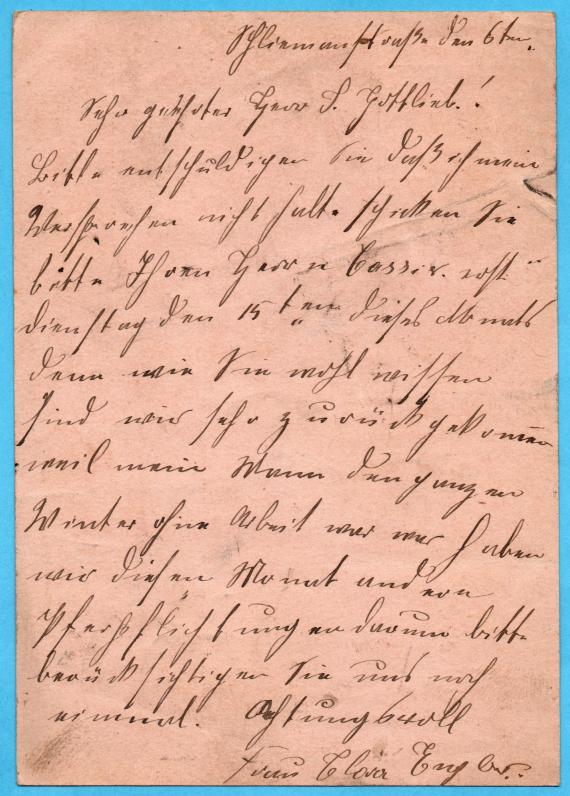 Schliemanstraße den 6ten.
Sehr geehrter Herr S. Gottlieb!
Bitte entschuldigen Sie daß ich mein
Versprechen nicht halte schicken Sie
bitte Ihren Herrn Cassir. erst
Dienstag den 15ten dieses Monats
denn wie Sie wohl wissen
sind wir sehr zurückgekomen
weil mein Mann den ganzen
Winter ohne Arbeit war nur haben
wir diesen Monat andern
bitte
berücksichtigen Sie uns noch
einmal. Achtungsvoll
Frau Clara